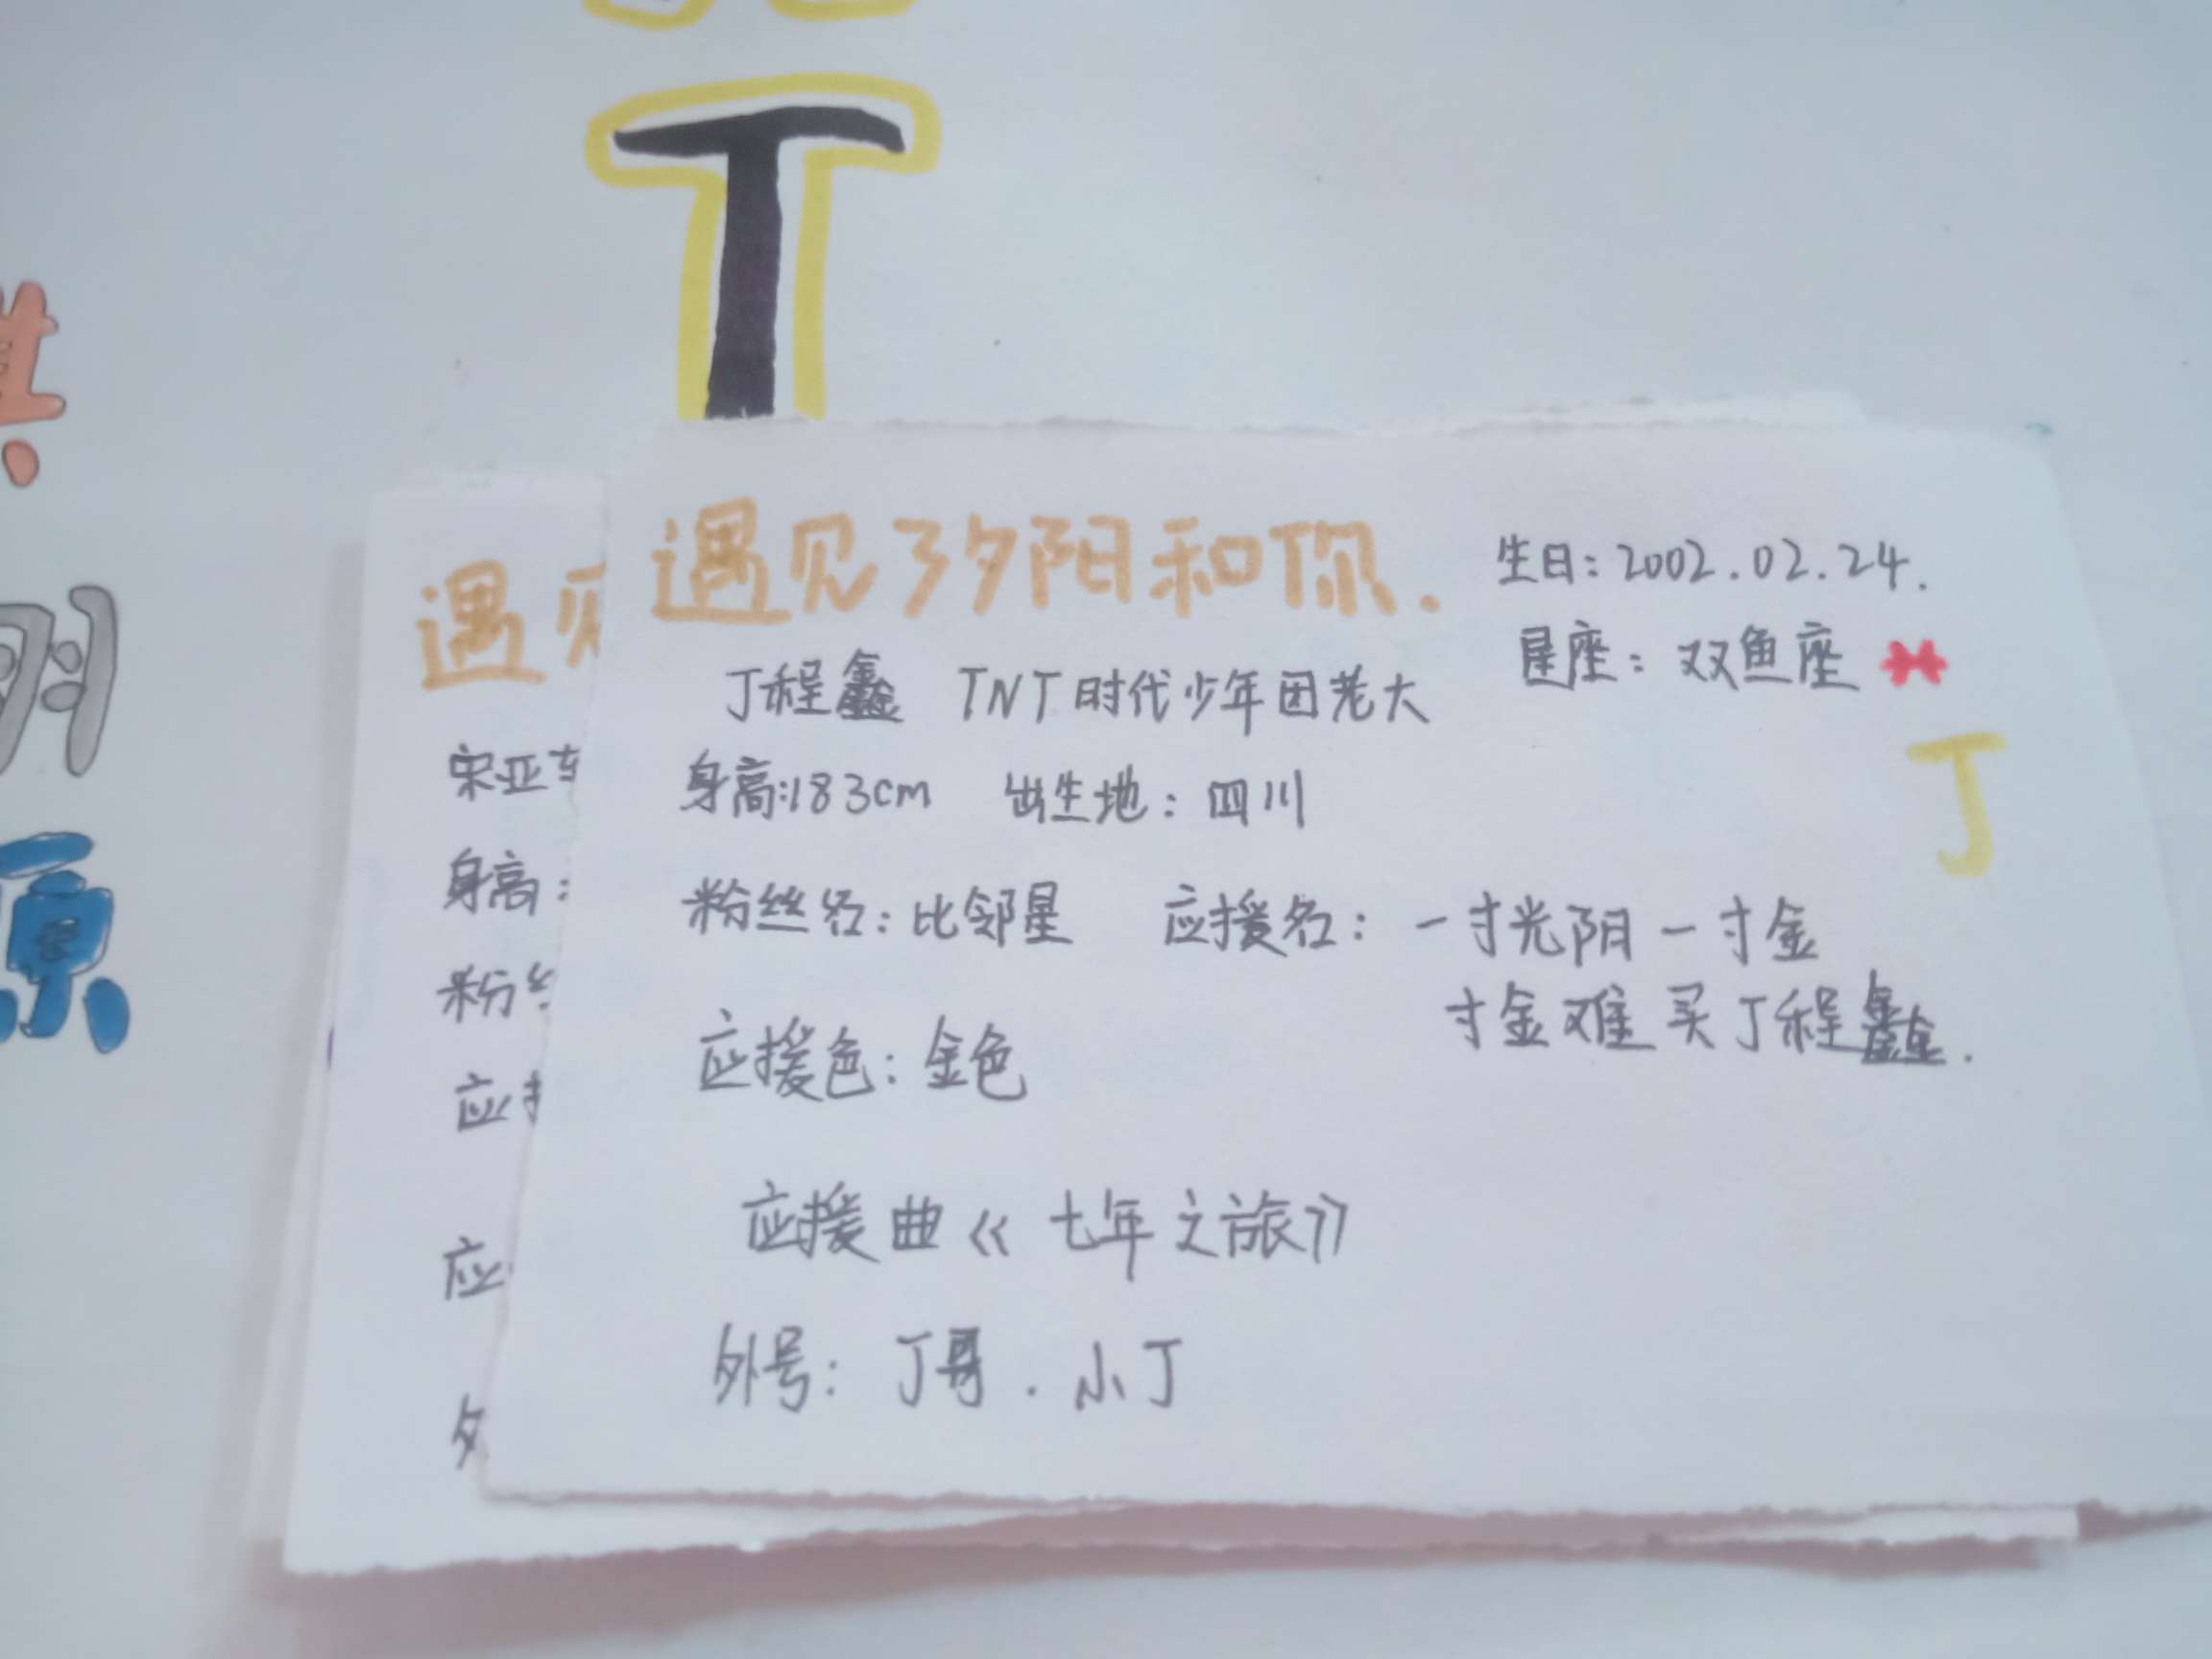 T
翔
原
遇见了夕阳和你.
生日：2002.02.24.
星座：双鱼座
丁程鑫 TNT时代少年团老大
丁
身高:183cm 出生地：四川
粉丝名：比邻星 应援名：一寸光阴一寸金
寸金难买丁程鑫.
应援色：金色
应援曲《七年之旅》
外号：丁哥.小丁
遇见
宋亚轩
身高：
粉丝
应援
应
外